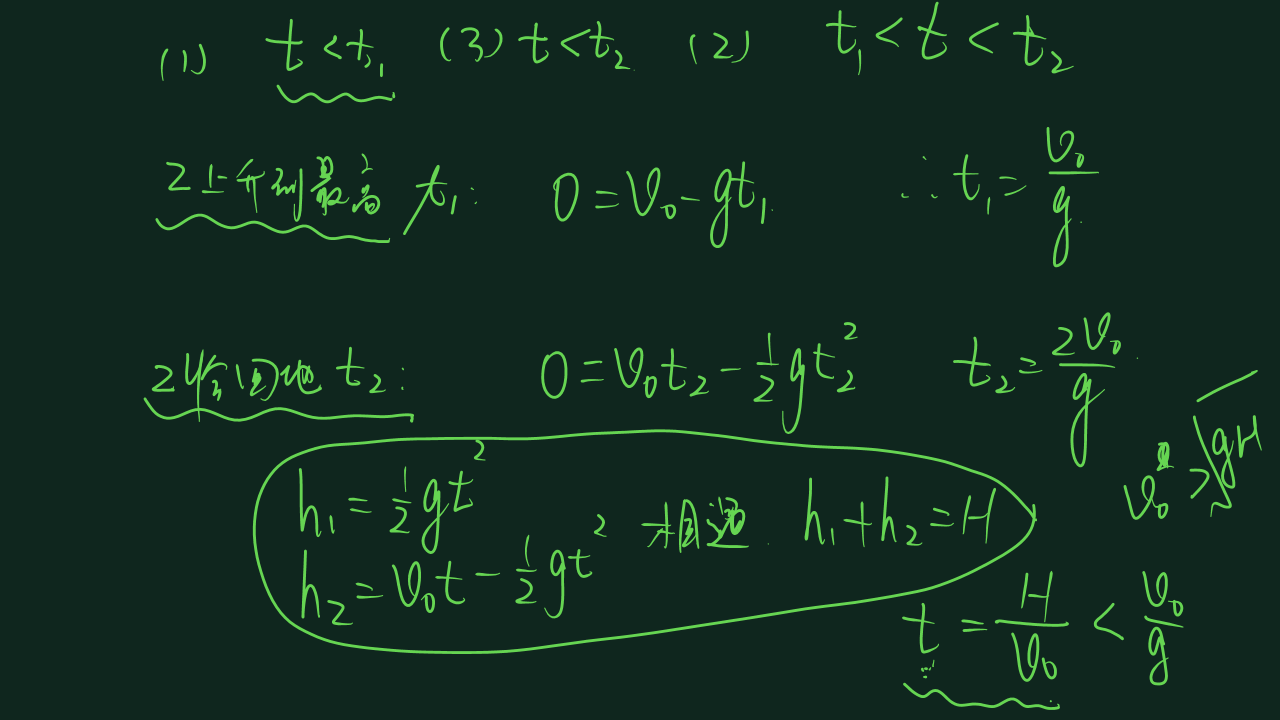 (1) t<t₁ (3) t<t₂ (2) t₁<t<t₂
2上升到最高 t₁: 0=v₀-gt₁ ∴t₁=v₀/g
2落回地 t₂: 0=v₀t₂-½gt₂² t₂=2v₀/g
v₀>√gH
h₁=½gt² 相遇 h₁+h₂=H
h₂=v₀t-½gt²
t=H/v₀<v₀/g